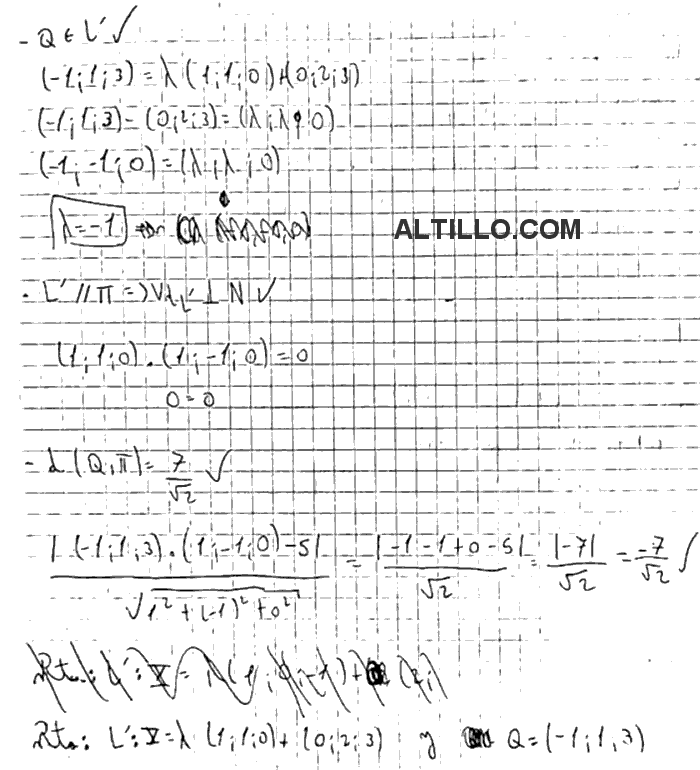 - Q ∈ L' ✓
(-1; 1; 3) = λ (1; 1; 0) + (0; 2; 3)
(-1; 1; 3) - (0; 2; 3) = (λ; λ; 0)
(-1; -1; 0) = (λ; λ; 0)
λ = -1
ALTILLO.COM
· L' // π => Vd L' ⊥ N ✓
(1; 1; 0) · (1; -1; 0) = 0
0 = 0
- d (Q, π) = 7/√2 ✓
| (-1; 1; 3) · (1; -1; 0) - 5 | / √(1² + (-1)² + 0²) = | -1 - 1 + 0 - 5 | / √2 = |-7| / √2 = -7/√2 ✓
Rta: L': X = λ (1; 1; 0) + (0; 2; 3) y Q = (-1; 1; 3)